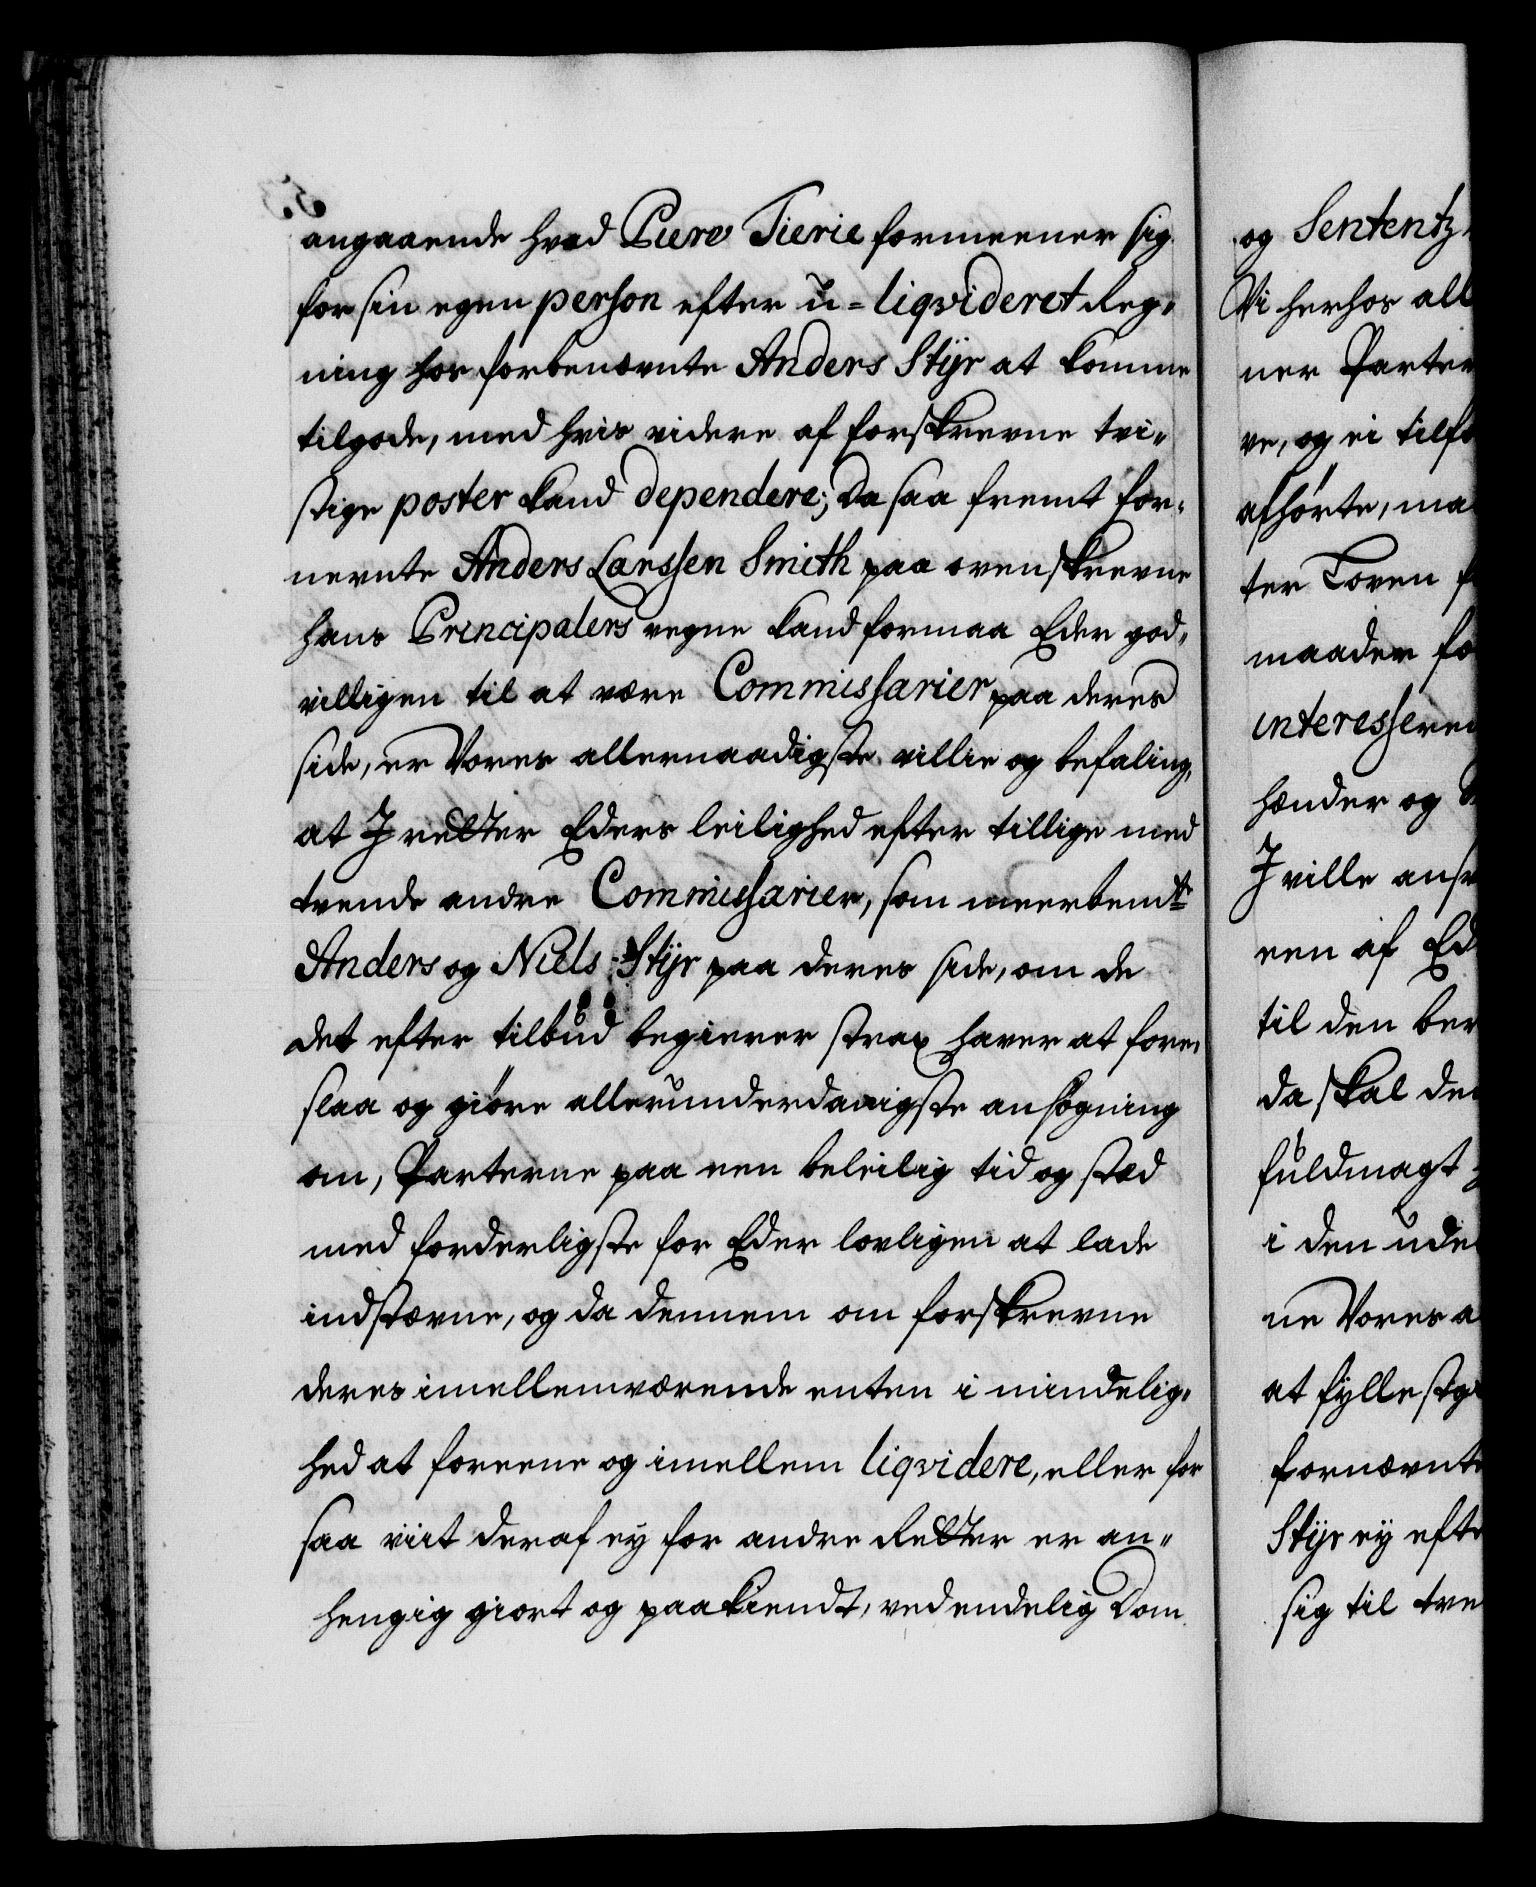 angaaende hvad Piere Tierie formeener sig
for sin egen person efter u-liqvideret Reg-
ning hos forbenævnte Anders Stÿr at komme
tilgode, med hvis videre af forskrevne tvi-
stige poster kand dependere; Da saa fremt for-
nevnte Anders Larssen Smith paa ovenskrevne
hans Principalers vegne kand formaa Eder god-
villigen til at være Commissarier paa deres
side, er Vores allernaadigste villie og befaling,
at I retter Eders leilighed efter tillige med
tvende andre Commissarier, som meerbemte
Anders og Niels Stÿr paa deres side, om de
det efter tilbud begierer strax haver at fore-
slaa og giöre allerunderdanigste ansögning
om, Parterne paa een beleilig tid og stæd
med forderligste for Eder lovligen at lade
indstævne, og da dennem om forskrevne
deres imellemværende enten i mindelig-
hed at foreene og imellem liqvidere, eller for
saa viit deraf ej for andre Retter er an-
hengig giort og paakiendt, ved endelig Dom
og Sententz
Vi herhos all
ner Parter
ve, og ei tilf
afhörte, ma
ter Loven f
maader fo
interessere
hænder og
I ville ansv
een af Ed
til den ber
da skal de
fuldmagt
i den ude
ne Vores a
at fyllestg
fornævnte
Stÿr ej efte
sig til tve